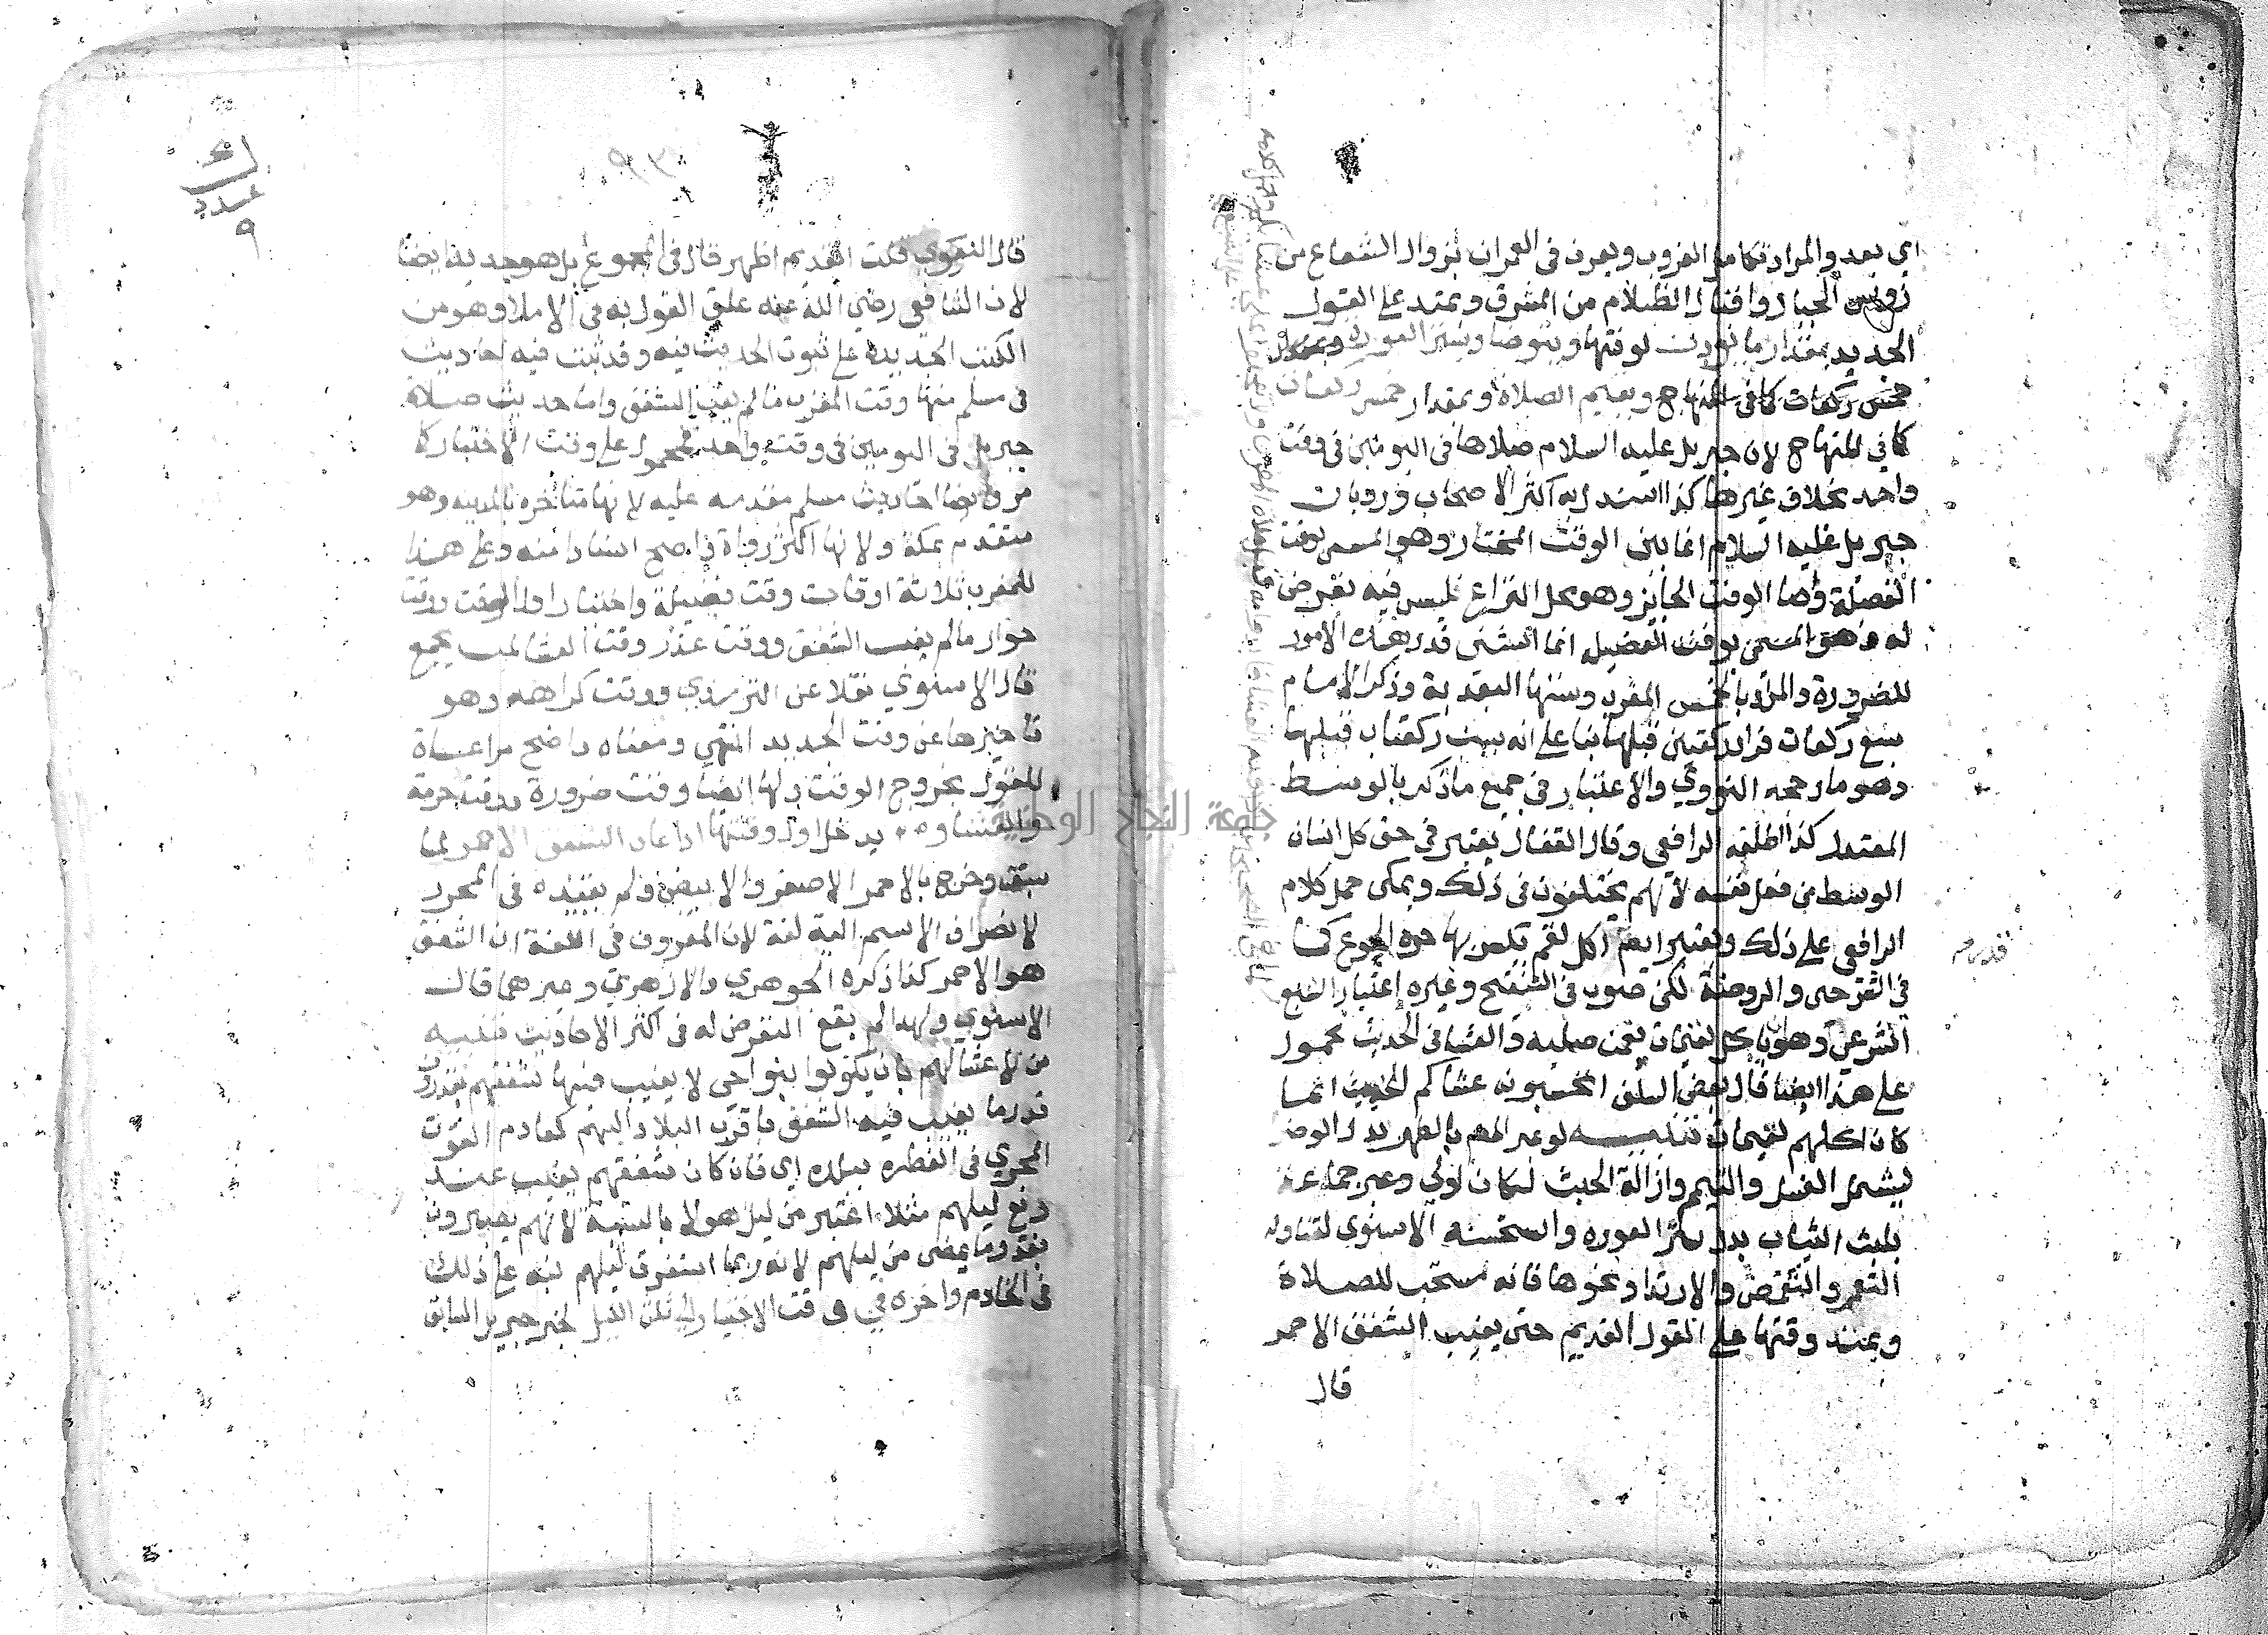 اي بعد والمراد تكامل الغروب ويعرف في العمران بزوال الشعاع من
رويس الجبال واقبال الظلام من المشرق ويمتد على القول
الجديد بمقدار ما يوذن لوقتها ويتوضا ويستر العورة وبمقدار
خمس ركعات كما في المنهاج ويقيم الصلاة وبمقدار خمس ركعات
كما في المنهاج لان جبريل عليه السلام صلاها في اليومين في وقت
واحد بخلاف غيرها كذا استدل به اكثر الاصحاب ورد بان
جبريل عليه السلام انما بين الوقت المختار وهو المسمى بوقت
الفضيلة واما الوقت الجايز وهو محل النزاع فليس فيه تعرض
له وهو المسمى بوقت الفضيلة انما استثنى قدر هذه الامور
للضرورة والمراد بالخمس المغرب وسنتها البعدية وذكر الامام
سبع ركعات فزاد ركعتين قبلها بنا على انه يسن ركعتان قبلها
وهو ما رجحه النووي والاعتبار في جميع ما ذكر بالوسط
المعتدل كذا اطلقه الرافعي وقال القفال يعتبر في حق كل انسان
الوسط من فعل نفسه لانهم يختلفون في ذلك ويمكن حمل كلام
الرافعي على ذلك ويعتبر ايضا اكل لقم يكسر بها حدة الجوع كما
في الشرحين والروضة لكن صوب في التنقيح وغيره اعتبار الشبع
الشرعي وهو ان ياكل لقيمات يقمن صلبه والعشا في الحديث محمول
على هذا ايضا قال بعض السلف اتحسبونه عشاكم الخبيث انما
كان اكلهم لقيمات تنبيه لو عبر المص بالطهر بدل الوضو
ليشمل الغسل والتيمم وازالة الخبث لكان اولى وعبر جماعة
بلبث الثياب بدل ستر العورة واستحسنه الاسنوي لتناوله
التعمم والتقمص والارتدا ونحوها فانه مستحب للصلاة
ويمتد وقتها على القول القديم حتى يغيب الشفق الاحمر
قال
قال النووي قلت القديم اظهر قال في المجموع بل هو جديد ايضا
لان الشافعي رضي الله عنه علق القول به في الاملا وهو من
الكتب الجديدة على ثبوت الحديث فيه وقد ثبت فيه احاديث
في مسلم منها وقت المغرب ما لم يغب الشفق واما حديث صلاة
جبريل في اليومين في وقت واحد فمحمول على وقت الاختيار كما
مر وايضا احاديث مسلم مقدمه عليه لانها متاخرة بالمدينه وهو
متقدم بمكة ولانها اكثر رواة واصح اسنادا منه وعلى هذا
للمغرب ثلاثة اوقات وقت فضيلة واختيار اول الوقت ووقت
جواز ما لم يغب الشفق ووقت عذر وقت العشا لمن يجمع
قال الاسنوي نقلا عن الترمذي ووقت كراهه وهو
تاخيرها عن وقت الجديد انتهى ومعناه واضح مراعاة
للقول بخروج الوقت ولها ايضا وقت ضرورة ووقت حرمة
والعشا يدخل اول وقتها اذا غاب الشفق الاحمر لما
سبق وخرج بالاحمر الاصفر والابيض ولم يقيده في المحرر
لانصراف الاسم اليه لغة لان المعروف في اللغة ان الشفق
هو الاحمر كذا ذكره الجوهري والازهري وغيرهما قال
الاسنوي ولهذا لم يقع التعرض له في اكثر الاحاديث تنبيه
من لا عشا لهم بان يكونوا بنواحي لا يغيب فيها شفقهم يقدرون
قدر ما يغيب فيه الشفق باقرب البلاد اليهم كعادم القوت
المجزي في الفطره ببلده اي فان كان شفقهم يغيب عند
ربع ليلهم مثلا اعتبر من ليل هولا بالنسبة لانهم يصيرون
بقدر ما يمضي من ليلهم لانه ربما استغرق ليلهم نبه على ذلك
في الخادم واخره في وقت الاختيار الى ثلث الليل لخبر جبريل السابق
عدد
٩
جامعة النجاح الوطنية